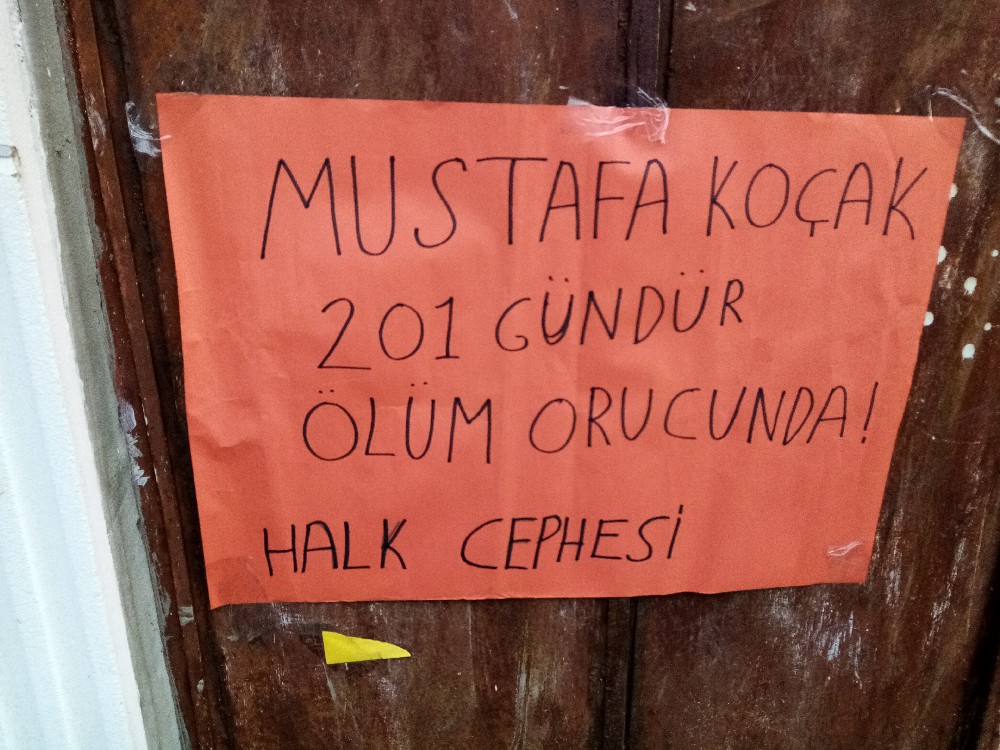 MUSTAFA KOÇAK
201 GÜNDÜR
ÖLÜM ORUCUNDA!
HALK CEPHESİ